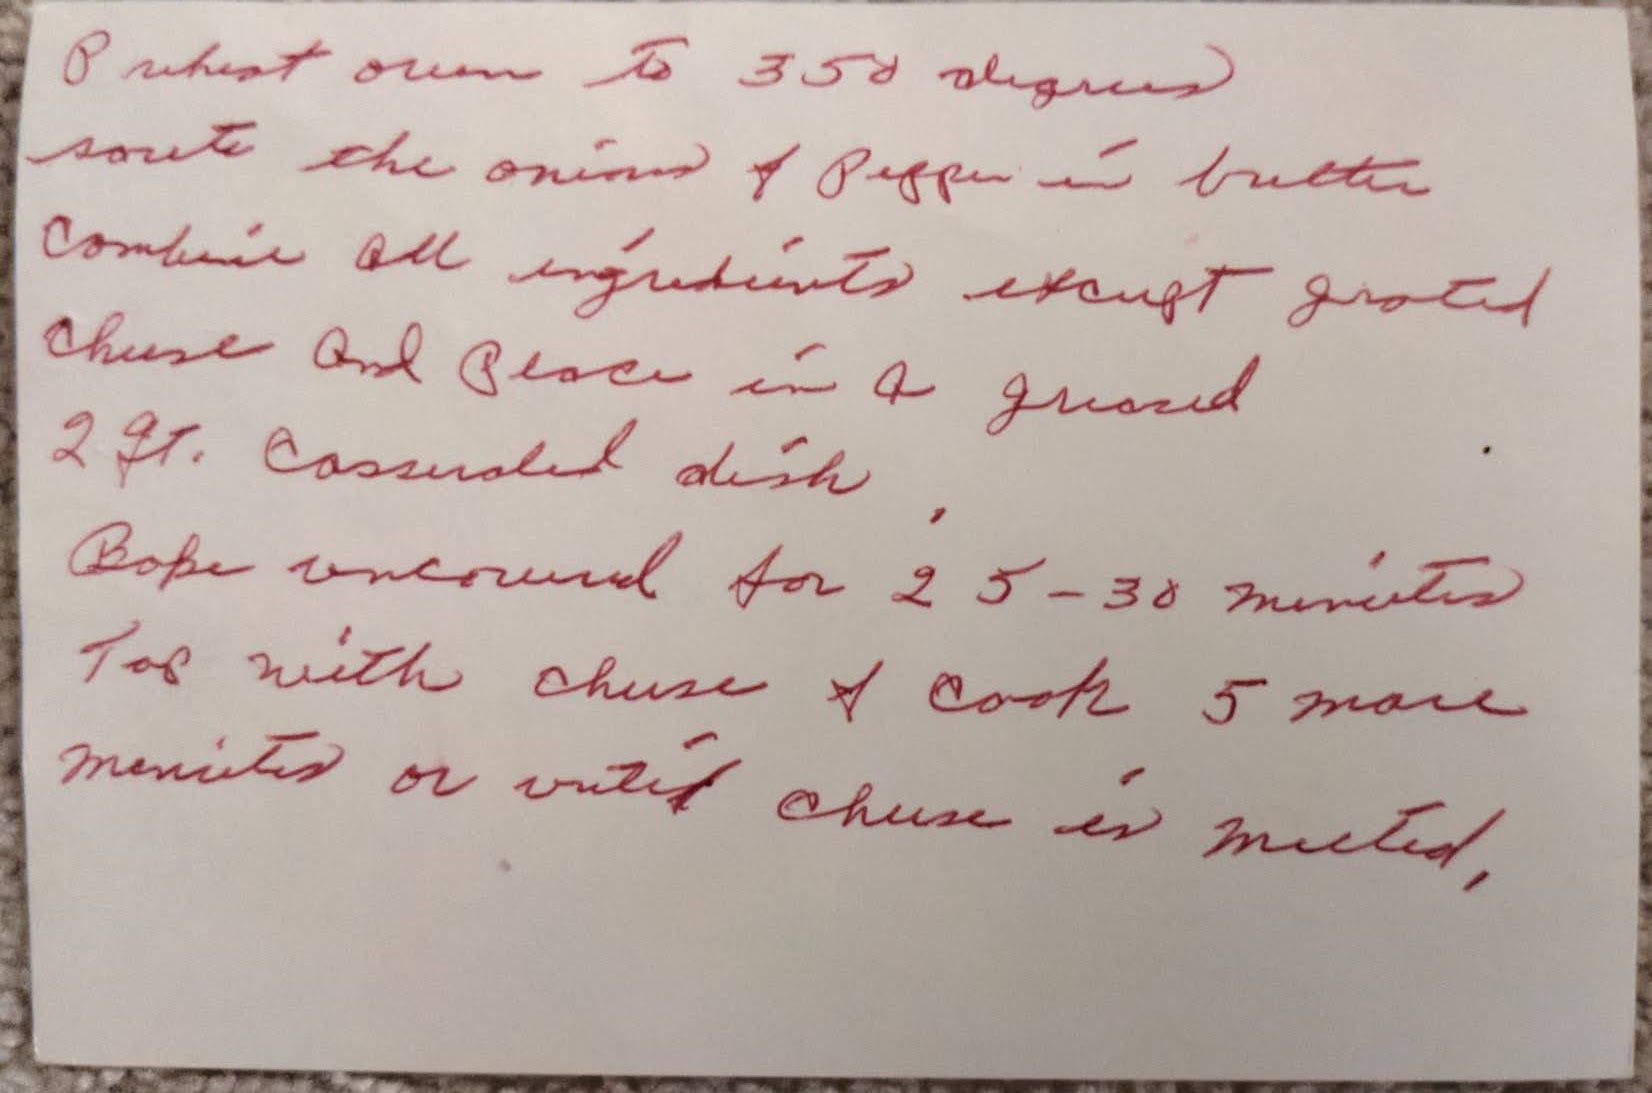 Preheat oven to 350 degrees
saute the onions & Pepper in butter
Combine all ingredients except grated
Cheese and Place in a greased
2 qt. Casseroled dish
Bake uncovered for 25-30 minutes
Top with cheese & cook 5 more
minutes or until cheese is melted,